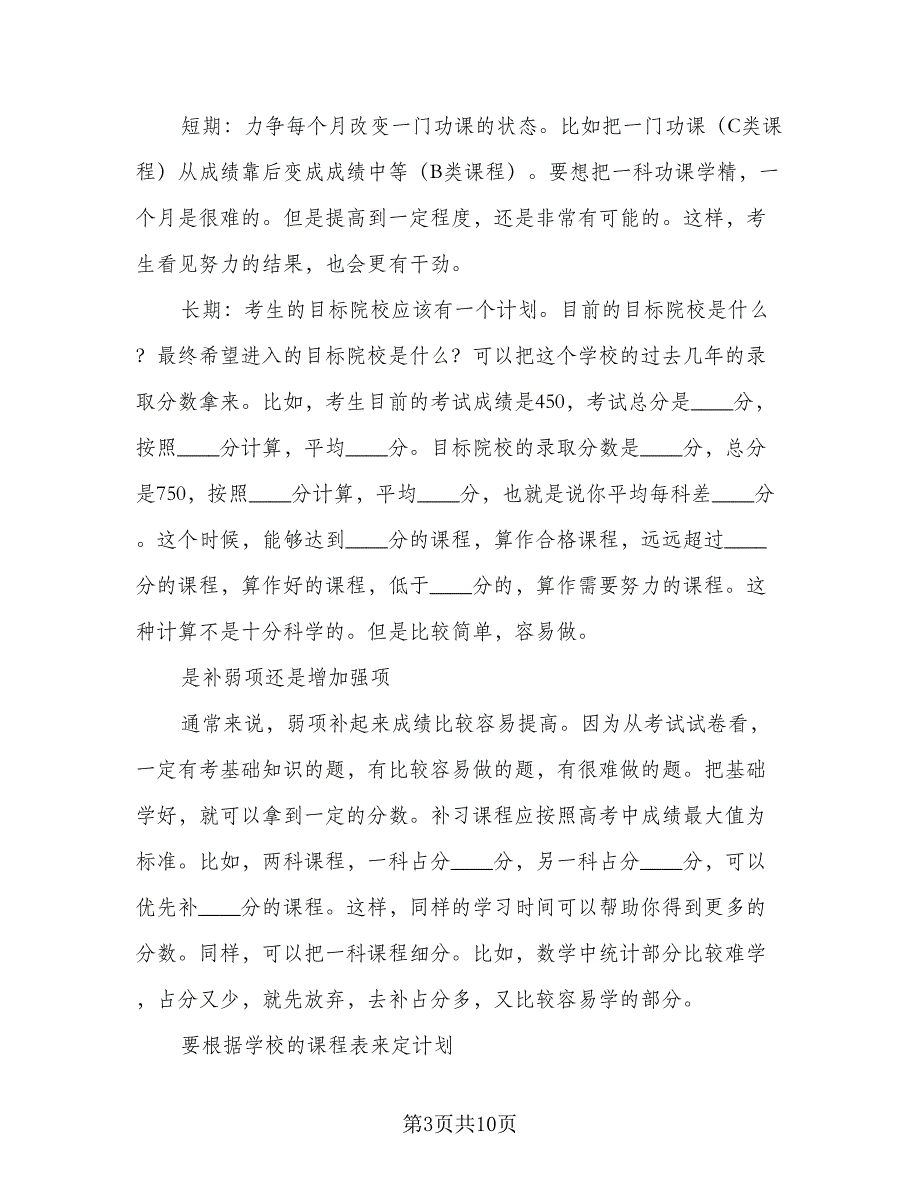 短期：力争每个月改变一门功课的状态。比如把一门功课（C类课
程）从成绩靠后变成成绩中等（B类课程）。要想把一科功课学精，一
个月是很难的。但是提高到一定程度，还是非常有可能的。这样，考
生看见努力的结果，也会更有干劲。
长期：考生的目标院校应该有一个计划。目前的目标院校是什么
？最终希望进入的目标院校是什么？可以把这个学校的过去几年的录
取分数拿来。比如，考生目前的考试成绩是450，考试总分是____分，
按照____分计算，平均____分。目标院校的录取分数是____分，总分
是750，按照____分计算，平均____分，也就是说你平均每科差____分
。这个时候，能够达到____分的课程，算作合格课程，远远超过____
分的课程，算作好的课程，低于____分的，算作需要努力的课程。这
种计算不是十分科学的。但是比较简单，容易做。
是补弱项还是增加强项
通常来说，弱项补起来成绩比较容易提高。因为从考试试卷看，
一定有考基础知识的题，有比较容易做的题，有很难做的题。把基础
学好，就可以拿到一定的分数。补习课程应按照高考中成绩最大值为
标准。比如，两科课程，一科占分____分，另一科占分____分，可以
优先补____分的课程。这样，同样的学习时间可以帮助你得到更多的
分数。同样，可以把一科课程细分。比如，数学中统计部分比较难学
，占分又少，就先放弃，去补占分多，又比较容易学的部分。
要根据学校的课程表来定计划
第3页共10页